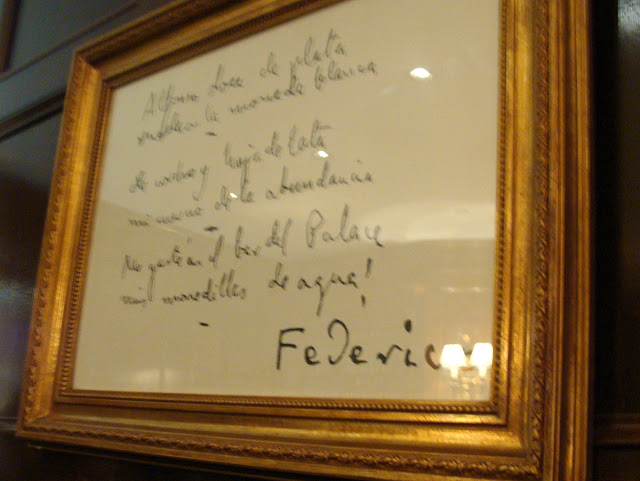 Alfonso doce de plata
en la moneda blanca
de y hoja de lata
mi cuerno de la abundancia
Me gasté en el bar del Palace
mis monedillas de agua!
Federico